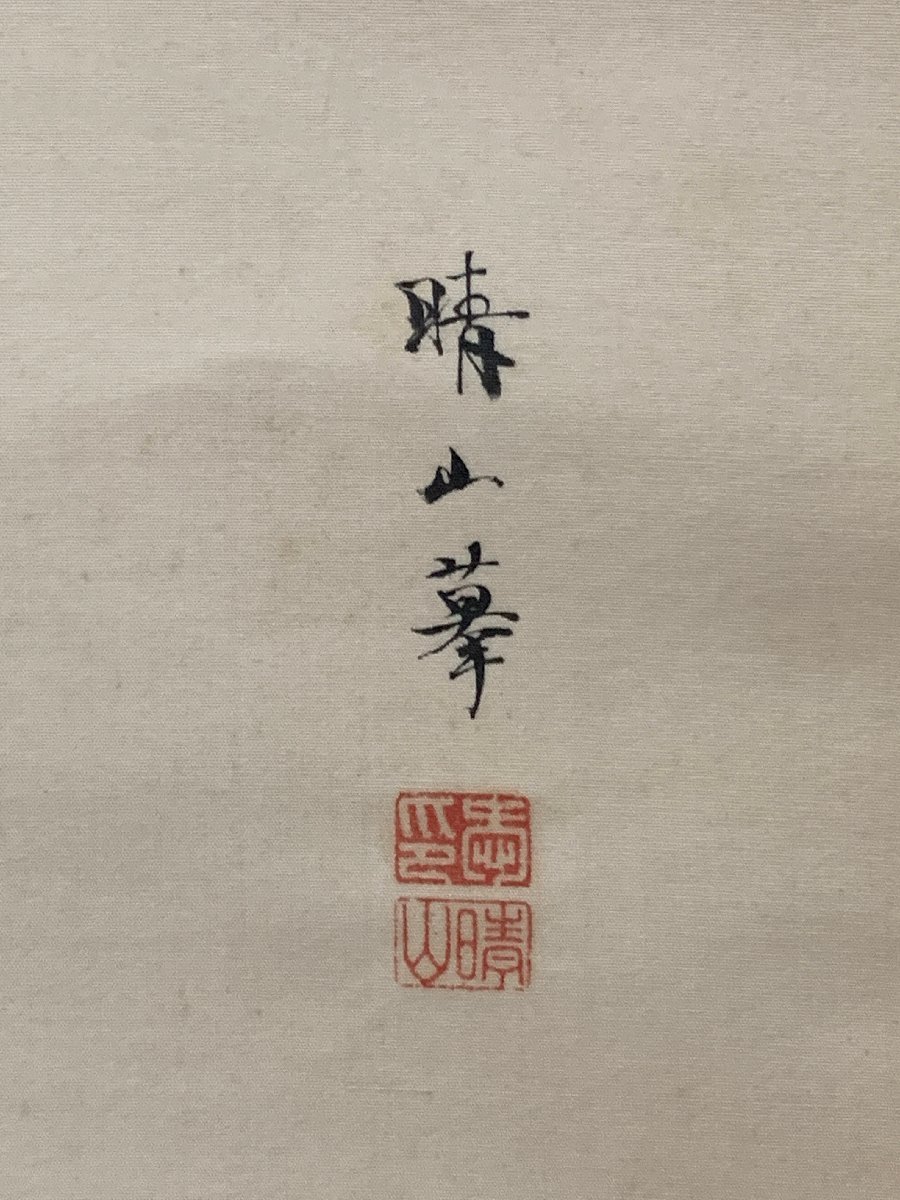 晴山摹
晴山